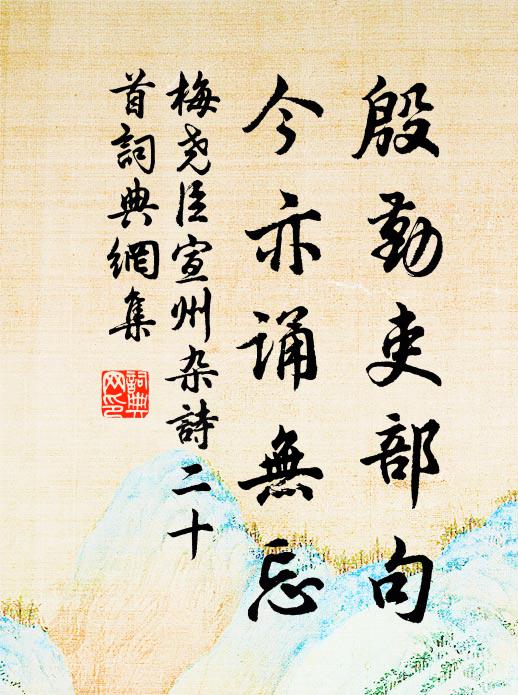 殷勤吏部句
今亦誦無忘
梅尧臣宣州杂詩二十
首詞典網集
詞典
网印